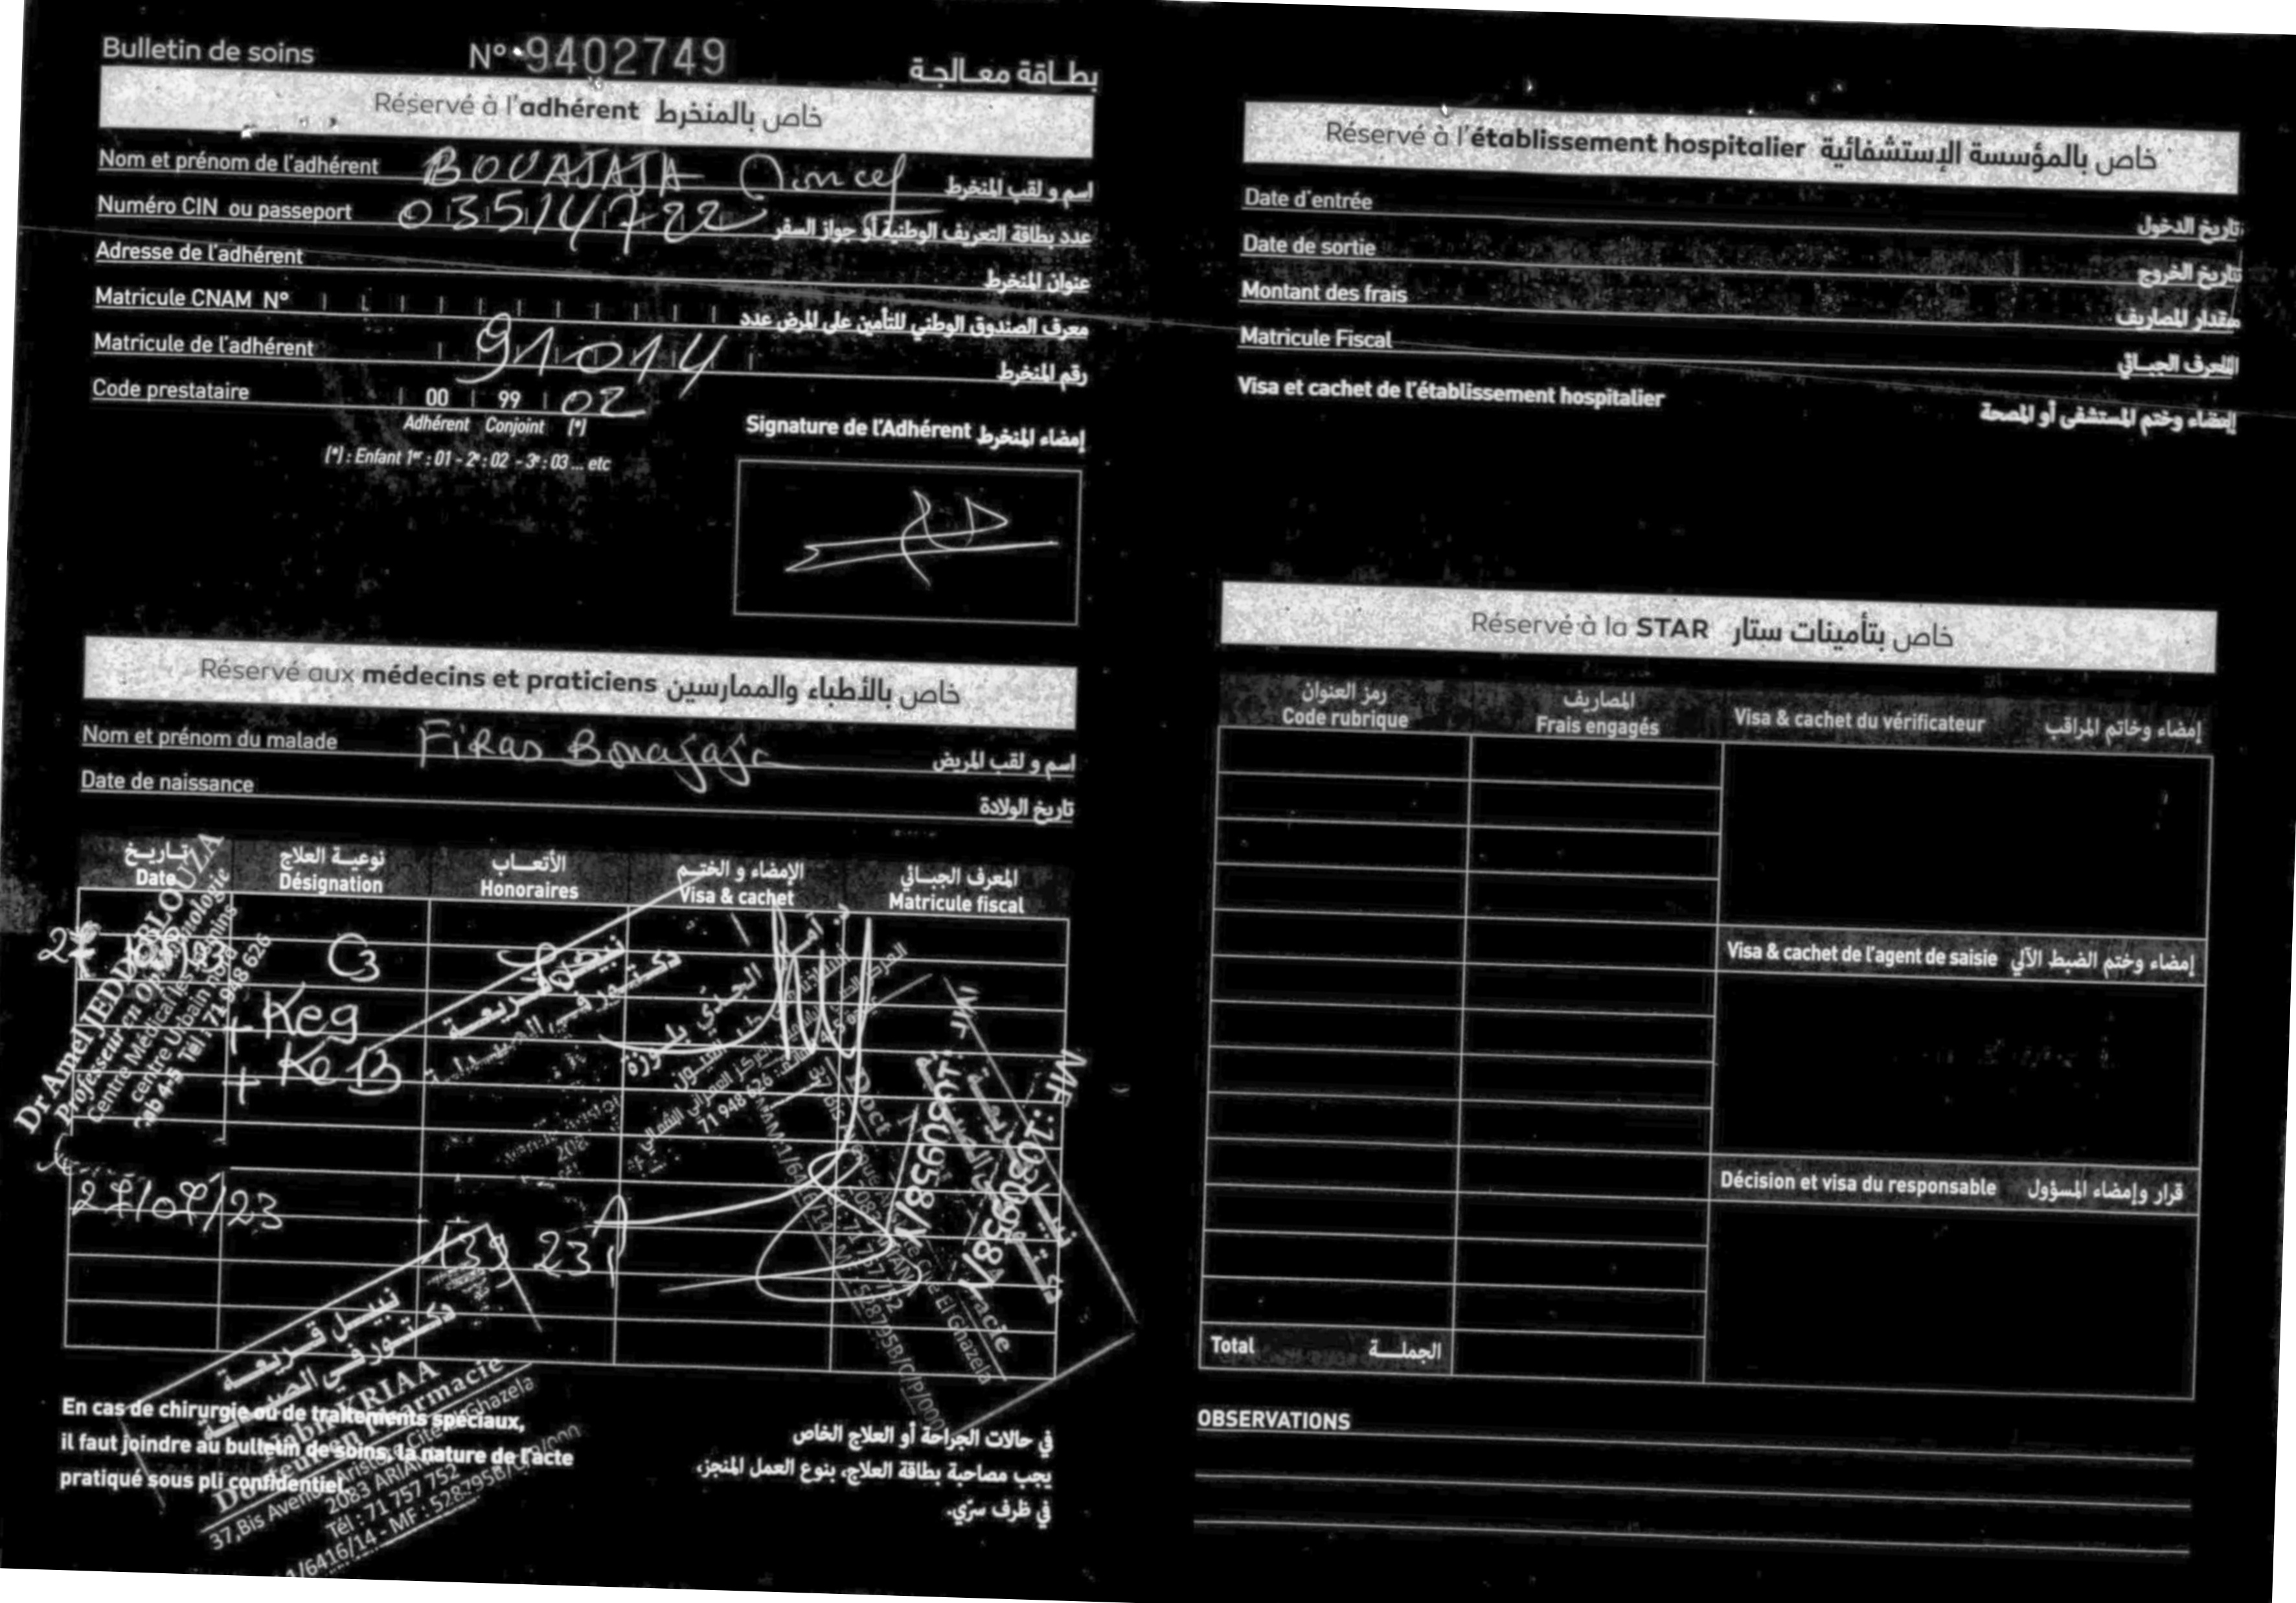 Bulletin de soins N° 9402749 بطاقة معالجة
Réservé à l'adhérent خاص بالمنخرط
Nom et prénom de l'adhérent BOUAJAJA Moncef اسم و لقب المنخرط
Numéro CIN ou passeport 03514722 عدد بطاقة التعريف الوطنية أو جواز السفر
Adresse de l'adhérent عنوان المنخرط
Matricule CNAM N° معرف الصندوق الوطني للتأمين على المرض عدد
Matricule de l'adhérent 91014 رقم المنخرط
Code prestataire 00 99 02
Adhérent Conjoint (*)
(*) : Enfant 1er : 01 - 2e : 02 - 3e : 03 ... etc
Signature de l'Adhérent إمضاء المنخرط
Réservé aux médecins et praticiens خاص بالأطباء والممارسين
Nom et prénom du malade Firas Bouajaja اسم و لقب المريض
Date de naissance تاريخ الولادة
تاريخ نوعية العلاج الأتعاب الإمضاء و الختم المعرف الجبائي
Date Désignation Honoraires Visa & cachet Matricule fiscal
C3
+ Keg
+ Ke 13
Dr Amel JEDDI BLOUZA
Professeur en Ophtalmologie
Centre Médical les Jasmins
centre Urbain nord
Cab 4-5 Tél : 71 948 626
الجدي بلوزة
71 948 626
نبيل قريعة
دكتور في الصيدلة
27/07/23
139 231
MF : 2080958/A
نبيل قريعة
دكتور في الصيدلة
Nabil KRIAA
Docteur en Pharmacie
37,Bis Avenue Aristote Cité El Ghazela
2083 ARIANA
Tél : 71 757 752
1/6416/14 - MF : 528795B/C/P/000
En cas de chirurgie ou de traitements spéciaux,
il faut joindre au bulletin de soins, la nature de l'acte
pratiqué sous pli confidentiel.
في حالات الجراحة أو العلاج الخاص
يجب مصاحبة بطاقة العلاج، بنوع العمل المنجز،
في ظرف سرّي.
Réservé à l'établissement hospitalier خاص بالمؤسسة الإستشفائية
Date d'entrée تاريخ الدخول
Date de sortie تاريخ الخروج
Montant des frais مقدار المصاريف
Matricule Fiscal المعرف الجبائي
Visa et cachet de l'établissement hospitalier إمضاء وختم المستشفى أو المصحة
Réservé à la STAR خاص بتأمينات ستار
رمز العنوان المصاريف
Code rubrique Frais engagés Visa & cachet du vérificateur إمضاء وخاتم المراقب
Visa & cachet de l'agent de saisie إمضاء وختم الضبط الآلي
Décision et visa du responsable قرار وإمضاء المسؤول
Total الجملة
OBSERVATIONS